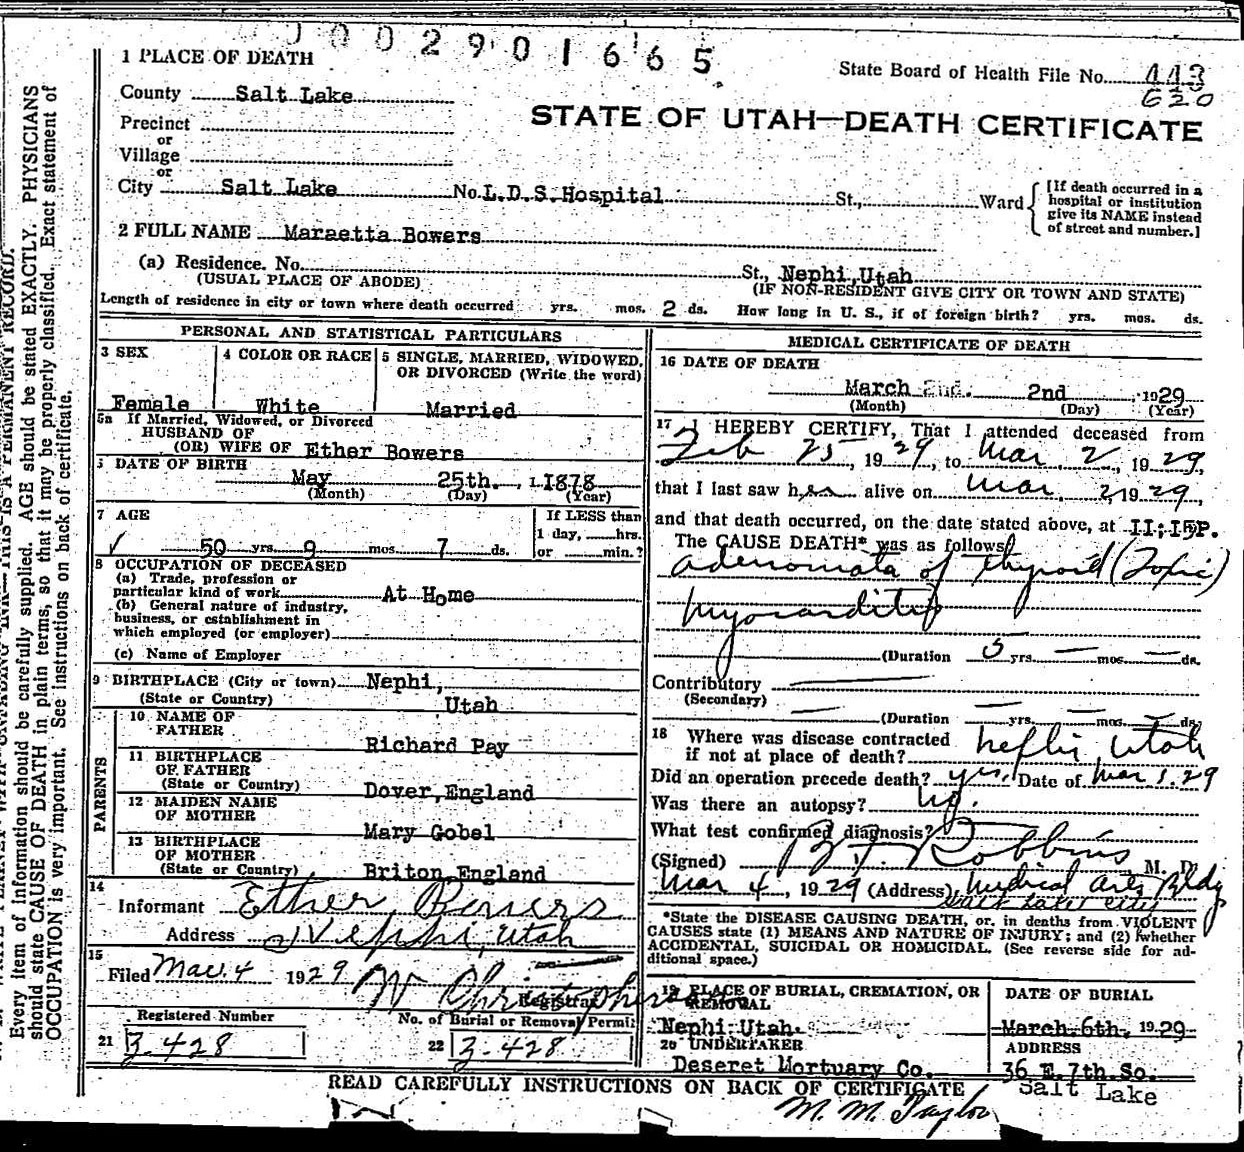 0 0 2 9 0 1 6 6 5
1 PLACE OF DEATH
State Board of Health File No. 443
620
County Salt Lake
STATE OF UTAH—DEATH CERTIFICATE
Precinct
or
Village
or
City Salt Lake No. L.D.S. Hospital St., Ward
[If death occurred in a
hospital or institution
give its NAME instead
of street and number.]
2 FULL NAME Maraetta Bowers
(a) Residence. No. St., Nephi, Utah
(USUAL PLACE OF ABODE) (IF NON-RESIDENT GIVE CITY OR TOWN AND STATE)
Length of residence in city or town where death occurred yrs. mos. 2 ds. How long in U. S., if of foreign birth? yrs. mos. ds.
PERSONAL AND STATISTICAL PARTICULARS
3 SEX
Female
4 COLOR OR RACE
White
5 SINGLE, MARRIED, WIDOWED,
OR DIVORCED (Write the word)
Married
5a If Married, Widowed, or Divorced
HUSBAND OF
(OR) WIFE OF Ether Bowers
DATE OF BIRTH
May 25th. 1878
(Month) (Day) (Year)
7 AGE
50 yrs. 9 mos. 7 ds.
If LESS than
1 day, hrs.
or min.?
8 OCCUPATION OF DECEASED
(a) Trade, profession or
particular kind of work At Home
(b) General nature of industry,
business, or establishment in
which employed (or employer)
(c) Name of Employer
9 BIRTHPLACE (City or town) Nephi,
(State or Country) Utah
PARENTS
10 NAME OF
FATHER Richard Pay
11 BIRTHPLACE
OF FATHER
(State or Country) Dover, England
12 MAIDEN NAME
OF MOTHER Mary Gobel
13 BIRTHPLACE
OF MOTHER
(State or Country) Briton, England
14
Informant Ether Bowers
Address Nephi, Utah
15
Filed Mar. 4 1929 W Christopherson
Registrar
Registered Number No. of Burial or Removal Permit
21 3-428 22 3-428
MEDICAL CERTIFICATE OF DEATH
16 DATE OF DEATH
March 2nd. 2nd , 1929
(Month) (Day) (Year)
17 I HEREBY CERTIFY, That I attended deceased from
Feb 25, 1929, to Mar 2, 1929,
that I last saw her alive on Mar. 2, 1929,
and that death occurred, on the date stated above, at II;I5P.
The CAUSE DEATH* was as follows
Adenomata of thyroid (Toxic)
Myocarditis
(Duration 5 yrs. — mos. — ds.
Contributory —
(Secondary)
— (Duration — yrs. — mos. — ds.
18 Where was disease contracted
if not at place of death? Nephi Utah
Did an operation precede death? yes, Date of Mar 1. 29
Was there an autopsy? No.
What test confirmed diagnosis?
(Signed) Robbins M. D.
Mar 4, 1929 (Address) Medical Arts Bldg
Salt Lake City
*State the DISEASE CAUSING DEATH, or, in deaths from VIOLENT
CAUSES state (1) MEANS AND NATURE OF INJURY; and (2) whether
ACCIDENTAL, SUICIDAL OR HOMICIDAL. (See reverse side for ad-
ditional space.)
19 PLACE OF BURIAL, CREMATION, OR
REMOVAL
Nephi Utah.
DATE OF BURIAL
March 6th. 1929
20 UNDERTAKER
Deseret Mortuary Co.
ADDRESS
36 E. 7th. So.
Salt Lake
READ CAREFULLY INSTRUCTIONS ON BACK OF CERTIFICATE
M. M. Taylor
Every item of information should be carefully supplied. AGE should be stated EXACTLY. PHYSICIANS
should state CAUSE OF DEATH in plain terms, so that it may be properly classified. Exact statement of
OCCUPATION is very important. See instructions on back of certificate.